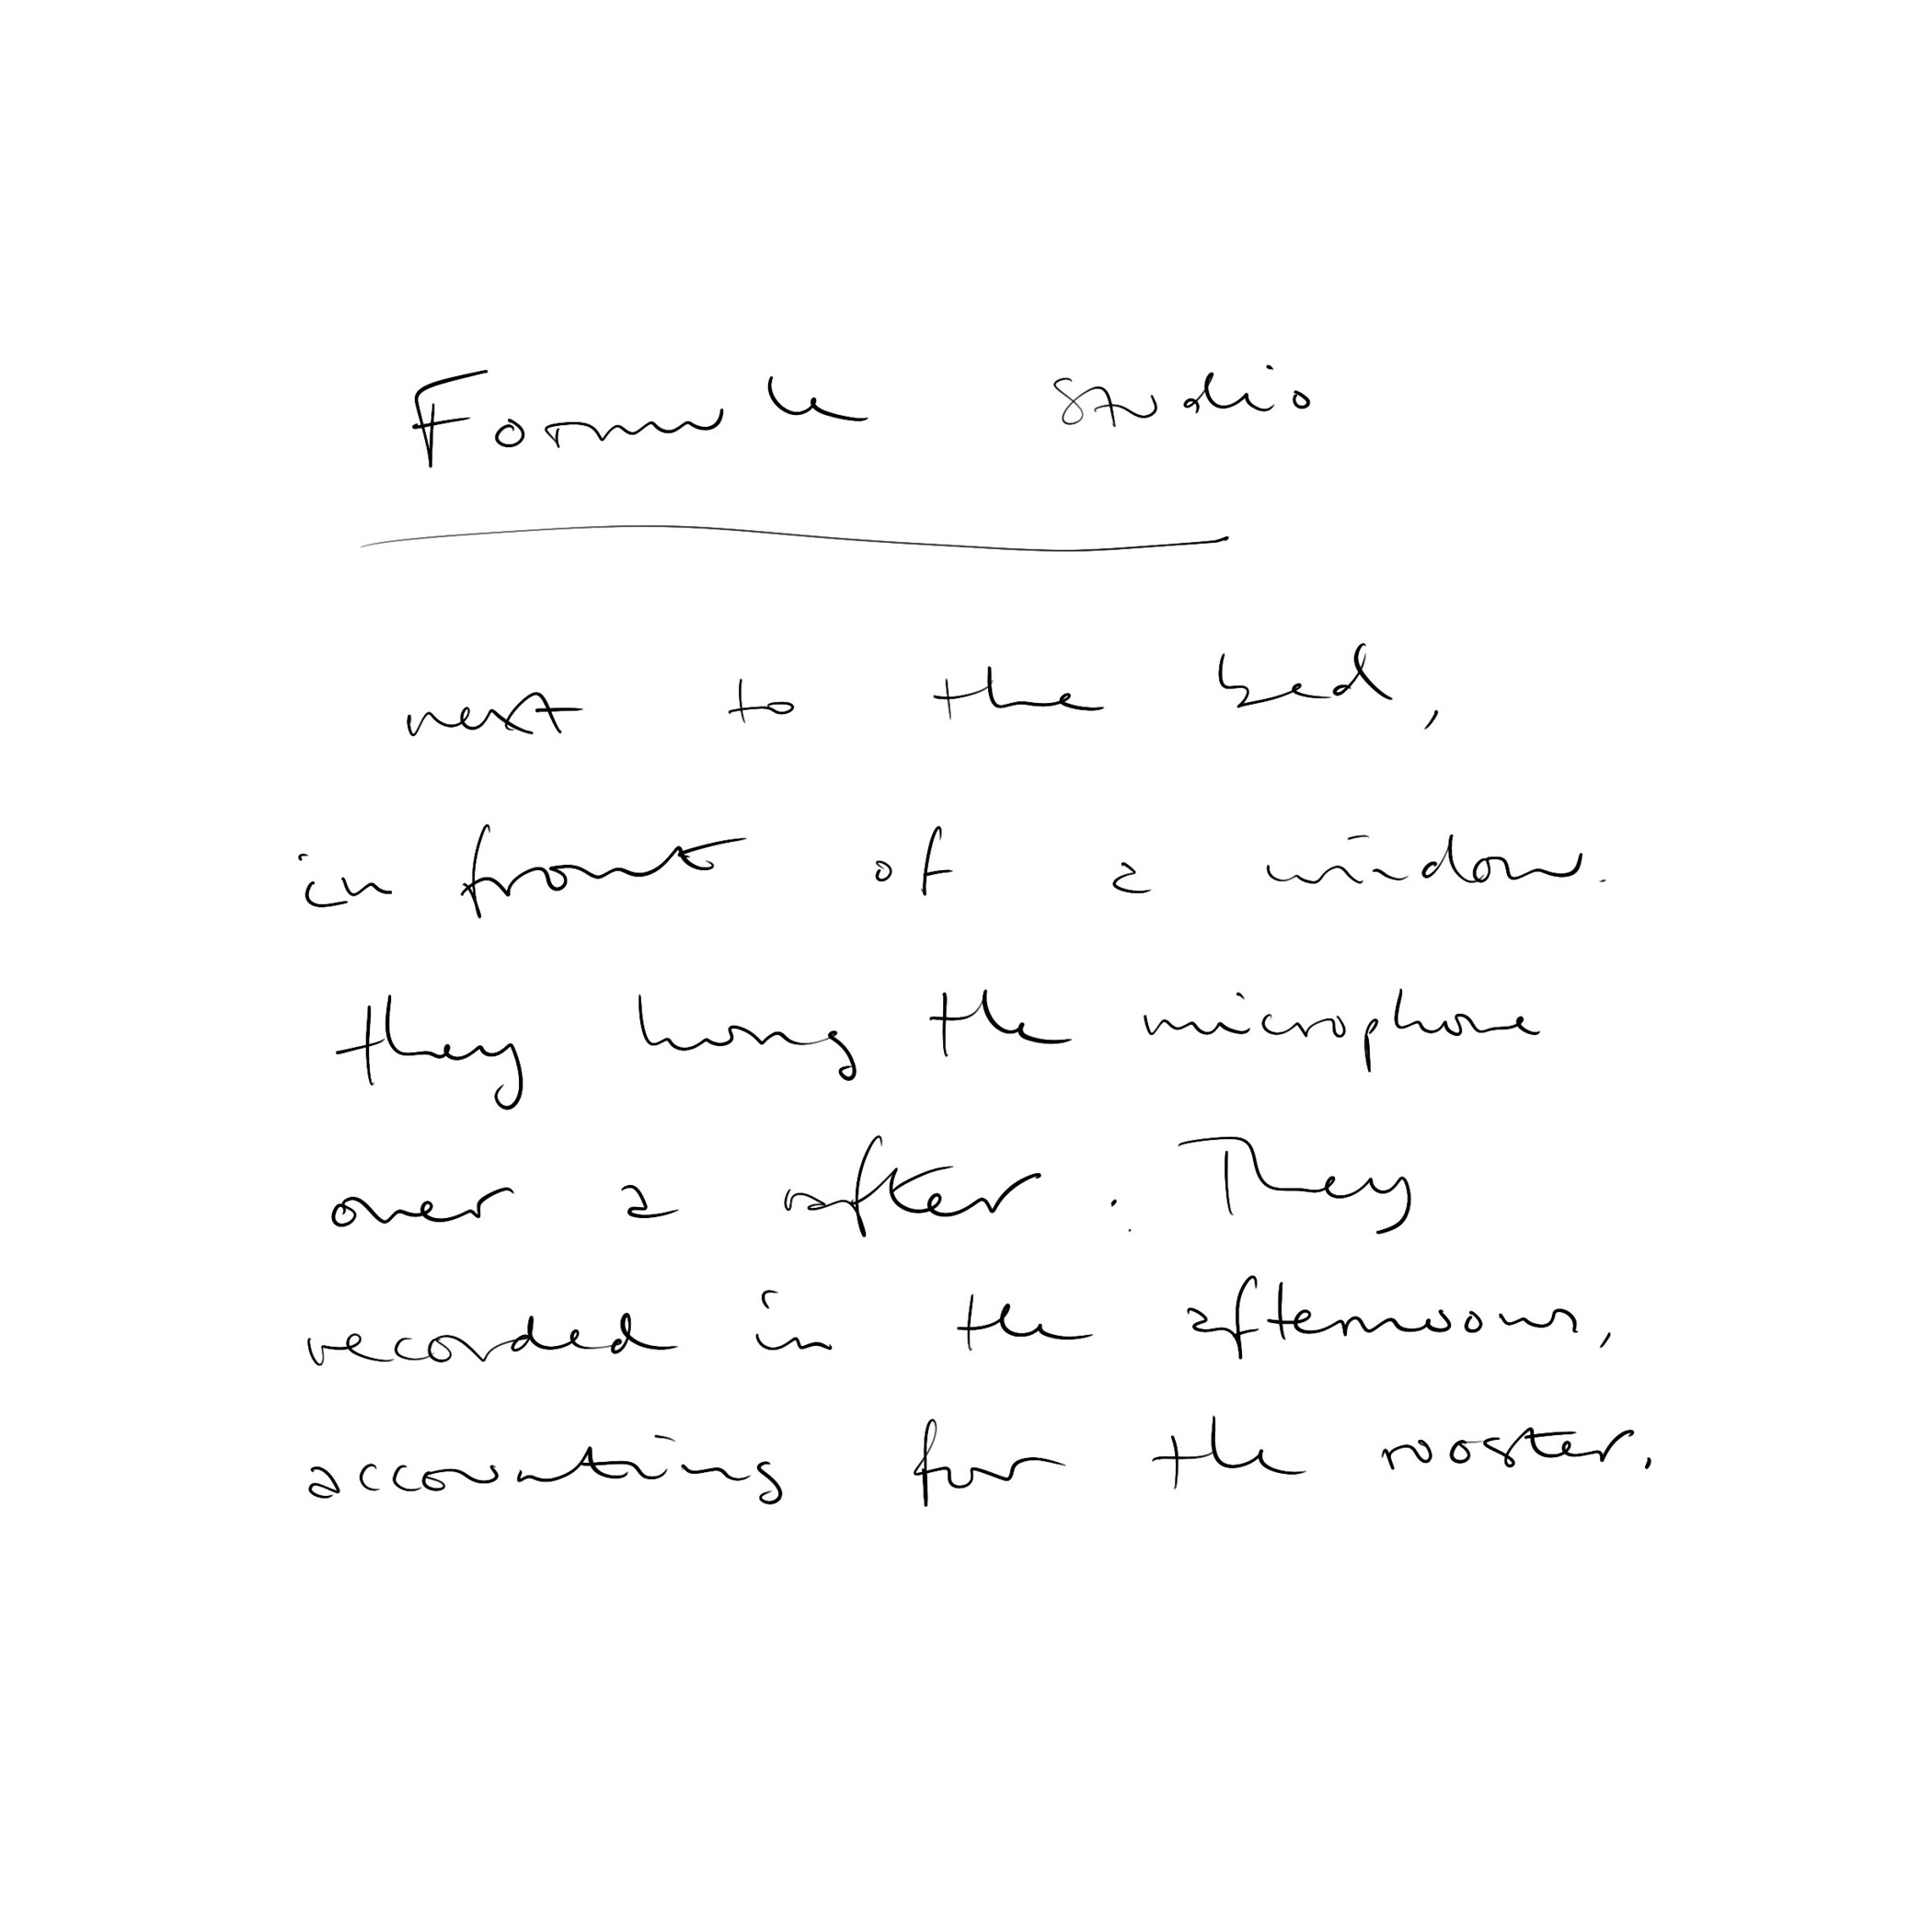 Formule Studio
next to the bed,
in front of a window.
they hung the microphone
over a after. They
recorded in the afternoons,
accounting for the rooster,